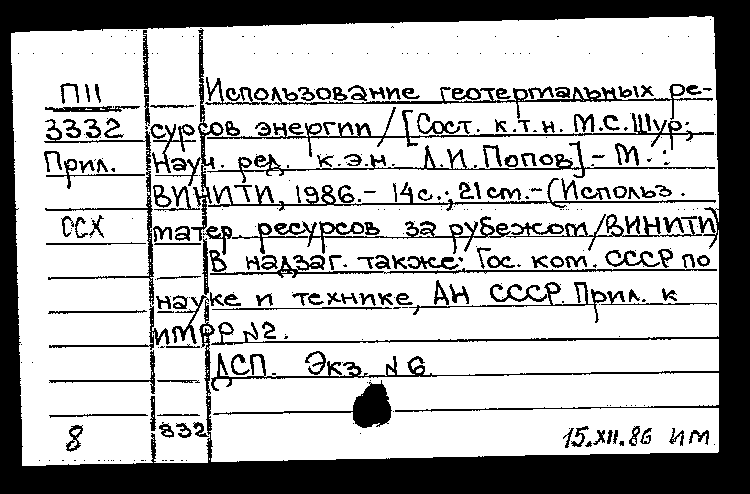 П11 Использование геотермальных ре-
3332 сурсов энергии / [Сост. к.т.н. М.С.Шур;
Прил. Науч. ред. к.э.н. Л.И.Попов] - М. :
ВИНИТИ, 1986. - 14с.; 21cm. - (Использ.
ОСХ матер. ресурсов за рубежом / ВИНИТИ)
В надзаг. также: Гос. ком. СССР по
науке и технике, АН СССР. Прил. к
ИМРР №2.
ДСП. Экз. №6.
8 832 15.XII.86 ИМ